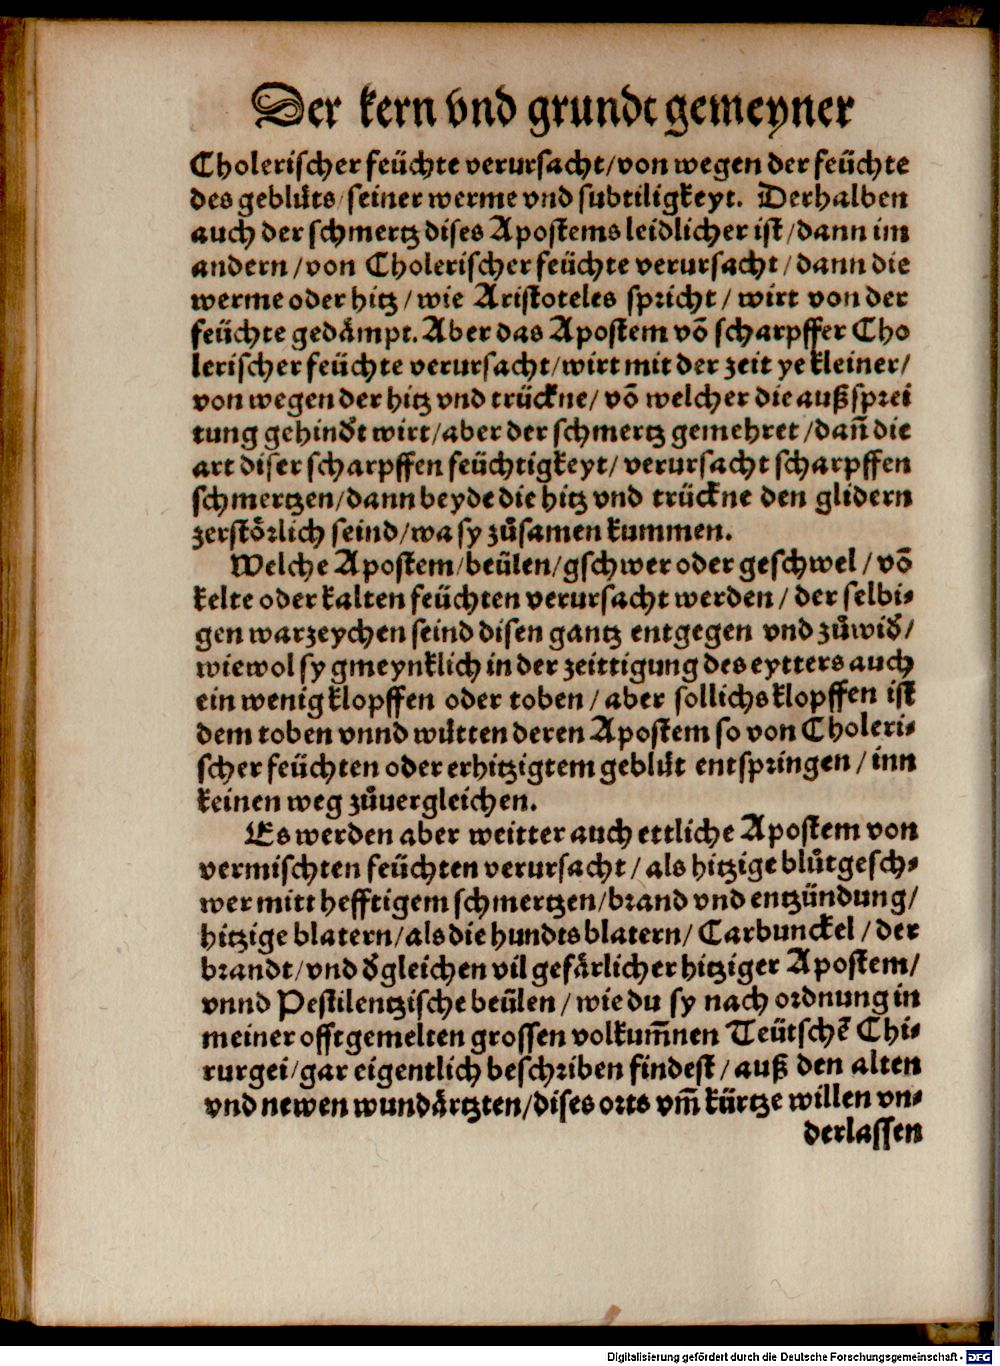 Der kern vnd grundt gemeyner
Cholerischer feüchte verursacht/von wegen der feüchte
des geblůts/seiner werme vnd subtiligkeyt. Derhalben
auch der schmertz dises Apostems leidlicher ist/dann im
andern/von Cholerischer feüchte verursacht/dann die
werme oder hitz/wie Aristoteles spricht/wirt von der
feüchte gedaͤmpt. Aber das Apostem võ scharpffer Cho
lerischer feüchte verursacht/wirt mit der zeit ye kleiner/
von wegen der hitz vnd trückne/võ welcher die außsprei
tung gehindʼt wirt/aber der schmertz gemehret/dañ die
art diser scharpffen feüchtigkeyt/verursacht scharpffen
schmertzen/dann beyde die hitz vnd trückne den glidern
zerstoͤrlich seind/wa sy zůsamen kummen.
Welche Apostem/beülen/gschwer oder geschwel/võ
kelte oder kalten feüchten verursacht werden/der selbi-
gen warzeychen seind disen gantz entgegen vnd zůwidʼ/
wiewol sy gmeynklich in der zeittigung des eytters auch
ein wenig klopffen oder toben/aber sollichs klopffen ist
dem toben vnnd wůtten deren Apostem so von Choleri-
scher feüchten oder erhitzigtem geblůt entspringen/inn
keinen weg zůuergleichen.
Es werden aber weitter auch ettliche Apostem von
vermischten feüchten verursacht/als hitzige blůtgesch-
wer mitt hefftigem schmertzen/brand vnd entzündung/
hitzige blatern/als die hundtsblatern/Carbunckel/der
brandt/vnd dʼgleichen vil gefaͤrlicher hitziger Apostem/
vnnd Pestilentzische beülen/wie du sy nach ordnung in
meiner offtgemelten grossen volkum̃nen Teütschẽ Chi-
rurgei/gar eigentlich beschriben findest/auß den alten
vnd newen wundaͤrtzten/dises orts vm̃ kürtze willen vn-
derlassen
Digitalisierung gefördert durch die Deutsche Forschungsgemeinschaft - DFG